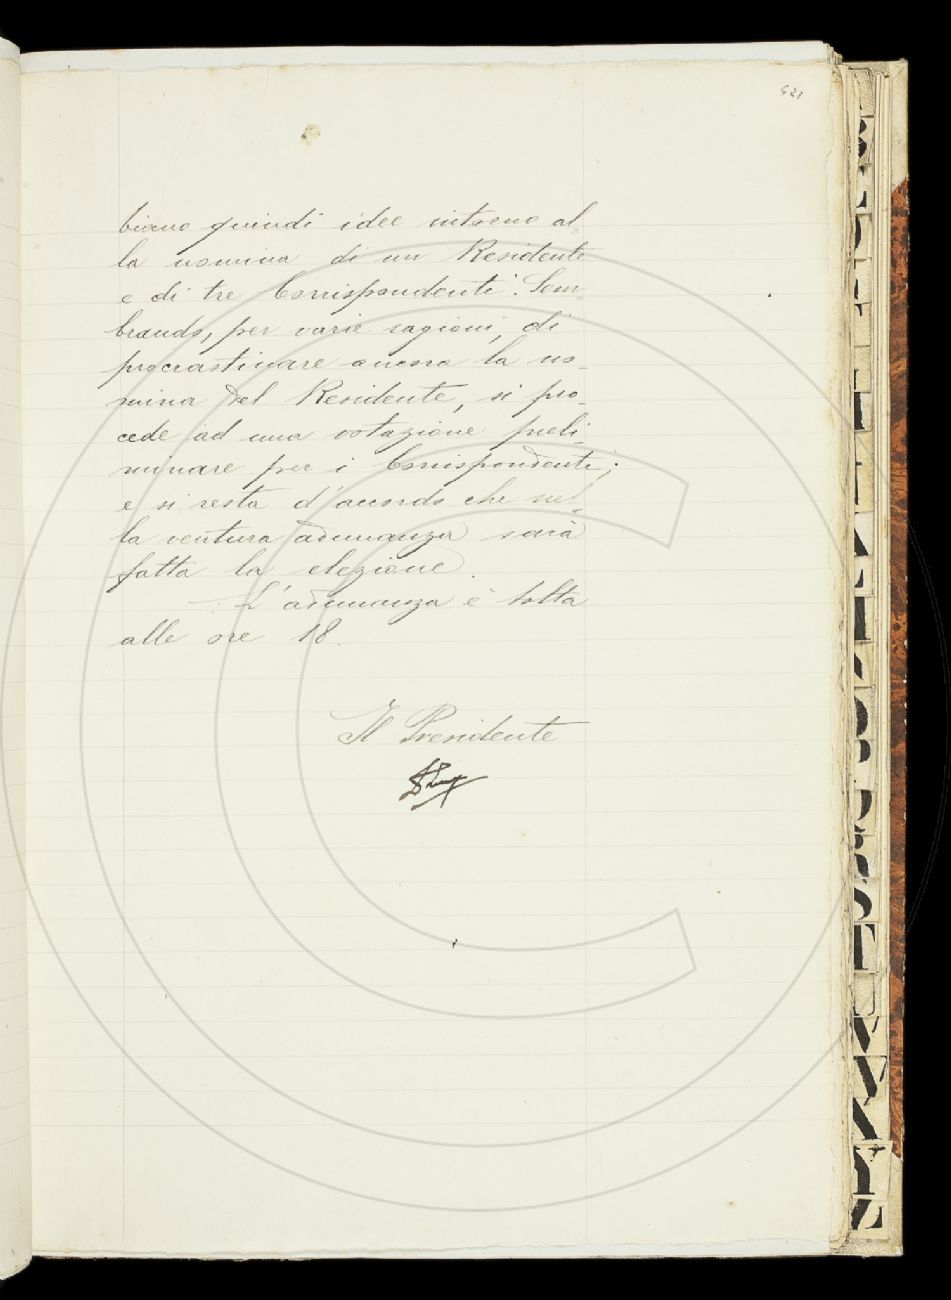 421
biano quindi idee intorno al-
la nomina di un Residente
e di tre Corrispondenti. Sem-
brando, per varie ragioni, di
procrastinare ancora la no-
mina del Residente, si pro-
cede ad una votazione preli-
minare per i Corrispondenti;
e si resta d'accordo che nel-
la ventura adunanza sarà
fatta la elezione.
L'adunanza è tolta
alle ore 18.
Il Presidente